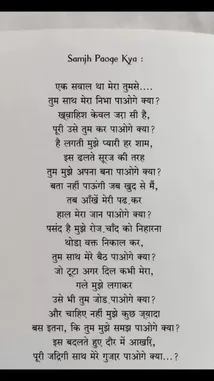 Samjh Paoge Kya :
एक सवाल था मेरा तुमसे....
तुम साथ मेरा निभा पाओगे क्या?
ख़्वाहिश केवल ज़रा सी है,
पूरी उसे तुम कर पाओगे क्या?
है लगती मुझे प्यारी हर शाम,
इस ढलते सूरज की तरह
तुम मुझे अपना बना पाओगे क्या?
बता नहीं पाऊंगी जब खुद से मैं,
तब आँखें मेरी पढ़ कर
हाल मेरा जान पाओगे क्या?
पसंद है मुझे रोज़ चाँद को निहारना
थोड़ा वक्त निकाल कर,
तुम साथ मेरे बैठ पाओगे क्या?
जो टूटा अगर दिल कभी मेरा,
गले मुझे लगाकर
उसे भी तुम जोड़ पाओगे क्या?
और चाहिए नहीं मुझे कुछ ज़्यादा
बस इतना, कि तुम मुझे समझ पाओगे क्या?
इस बदलते हुए दौर में आखरि,
पूरी जद़िगी साथ मेरे गुज़ार पाओगे क्या...?